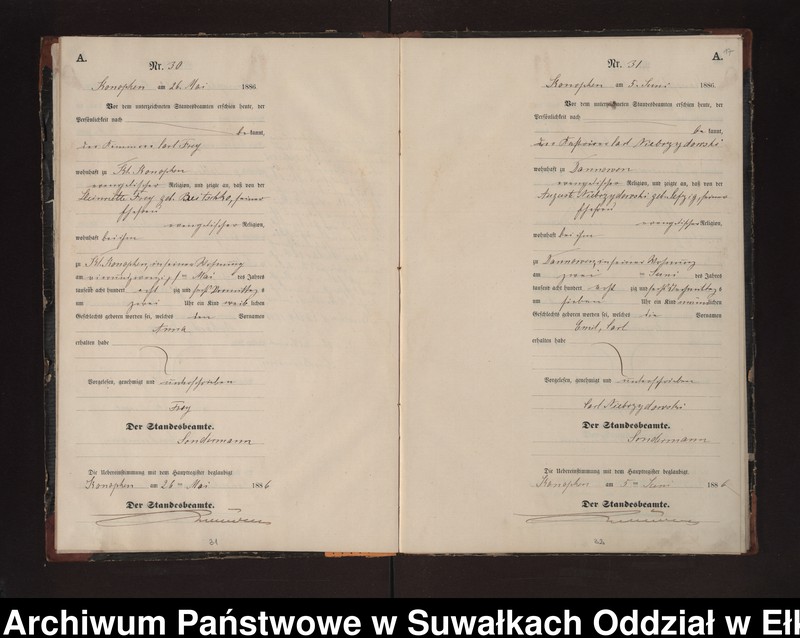 A.
Nr. 30
Konopken am 26. Mai 1886.
Vor dem unterzeichneten Standesbeamten erschien heute, der
Persönlichkeit nach
be kannt,
der Carl Froy
wohnhaft zu Kl. Konopken
evangelischer Religion, und zeigte an, daß von der
Henriette Froy geb. seiner
Ehefrau
evangelischer Religion,
wohnhaft bei ihm
zu Kl. Konopken in seiner Wohnung
am vierundzwanzigsten Mai des Jahres
tausend acht hundert acht zig und sechs Vormittags
um zwei Uhr ein Kind weib lichen
Geschlechts geboren worden sei, welches den Vornamen
Anna
erhalten habe
Vorgelesen, genehmigt und unterschrieben
Froy
Der Standesbeamte.
Sondermann
Die Uebereinstimmung mit dem Hauptregister beglaubigt.
Konopken am 26ten Mai 1886
Der Standesbeamte.
31
A.
Nr. 31
Konopken am 5. Juni 1886.
Vor dem unterzeichneten Standesbeamten erschien heute, der
Persönlichkeit nach
be kannt,
der Carl Niebrzydowski
wohnhaft zu Dannowen
evangelischer Religion, und zeigte an, daß von der
Auguste Niebrzydowski seiner
Ehefrau
evangelischer Religion,
wohnhaft bei ihm
zu Dannowen in seiner Wohnung
am zwei ten Juni des Jahres
tausend acht hundert acht zig und sechs Nachmittags
um sieben Uhr ein Kind männlichen
Geschlechts geboren worden sei, welches die Vornamen
Emil, Carl
erhalten habe
Vorgelesen, genehmigt und unterschrieben
Carl Niebrzydowski
Der Standesbeamte.
Sondermann
Die Uebereinstimmung mit dem Hauptregister beglaubigt.
Konopken am 5ten Juni 1886
Der Standesbeamte.
32
Archiwum Państwowe w Suwałkach Oddział w Ełk